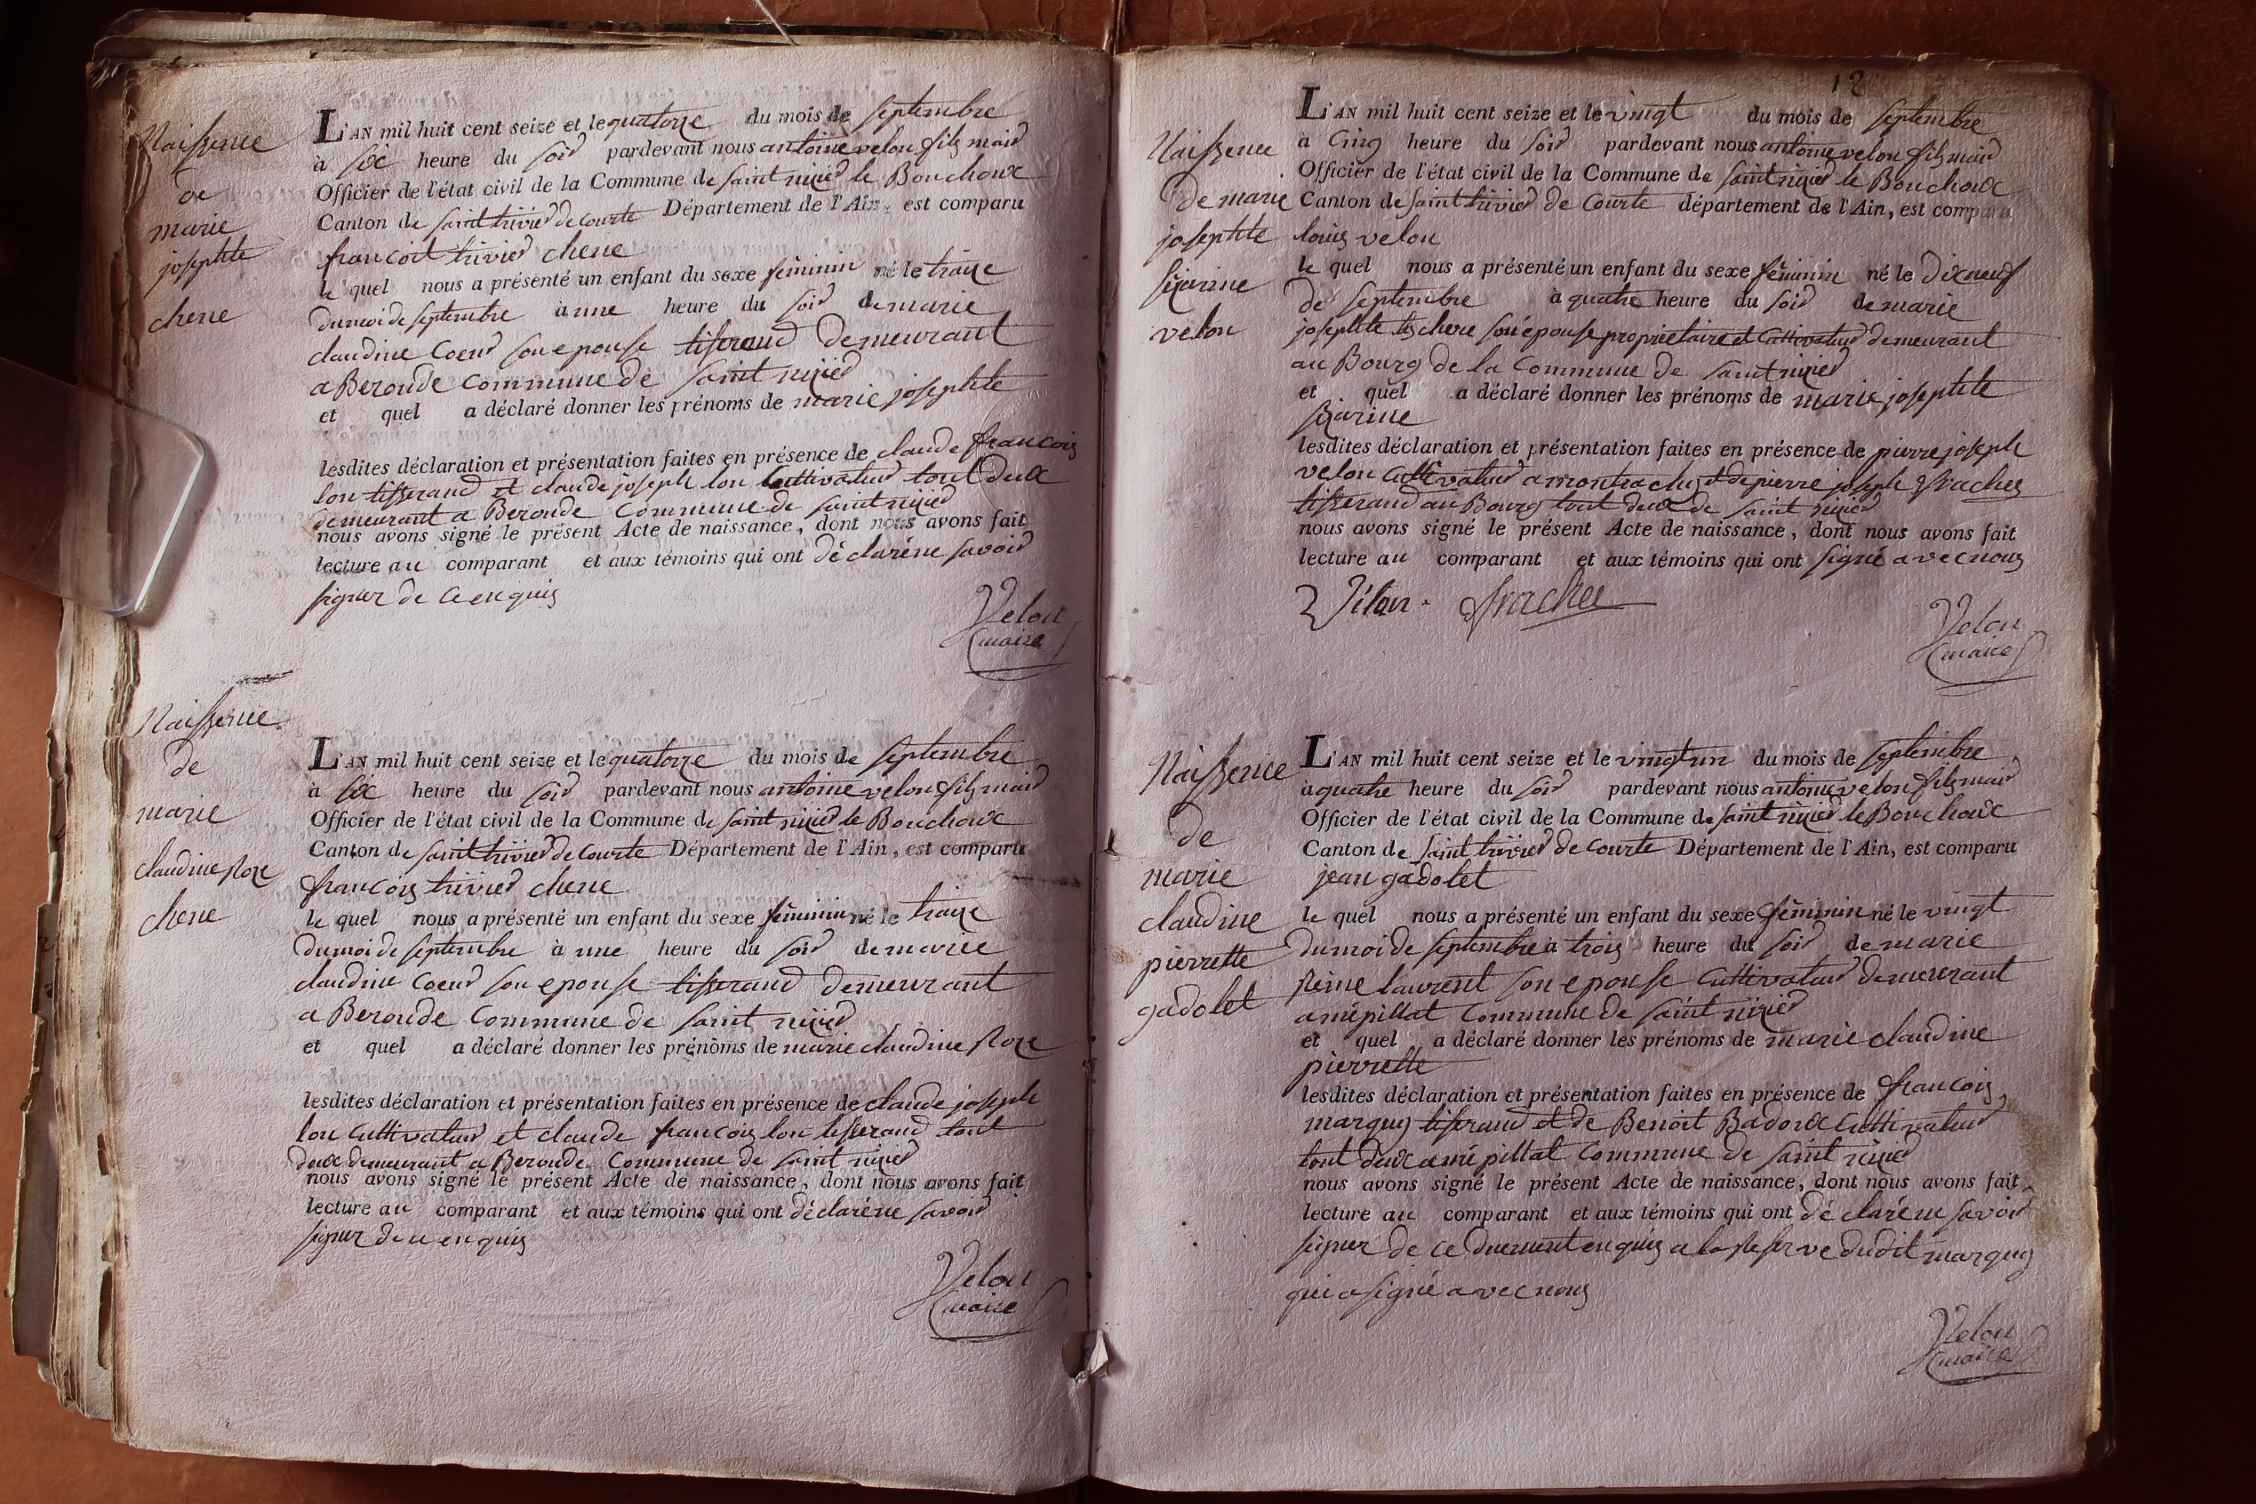 Naissence
de
marie
josephte
chene
L'AN mil huit cent seize et le quatorze du mois de septembre
à six heure du soir pardevant nous antoine velon fils mair
Officier de l'état civil de la Commune de saint nizier le Bouchoux
Canton de saint trivier de Courte Département de l'Ain, est comparu
francoit trivier chene
le quel nous a présenté un enfant du sexe féminin né le traize
du moi de septembre à une heure du soir de marie
claudine Coeur son epouse tisserand demeurant
a Beroude commune de saint nizier
et quel a déclaré donner les prénoms de marie josephte
lesdites déclaration et présentation faites en présence de claude francois
lon tisserand et claude joseph lon Cultivateur tout deux
demeurant a Beroude Commune de saint nizier
nous avons signé le présent Acte de naissance, dont nous avons fait
lecture au comparant et aux témoins qui ont déclaré ne savoir
signer de ce enquis
Velon
maire
Naissence
de
marie
claudine Roze
chene
L'AN mil huit cent seize et le quatorze du mois de septembre
à six heure du soir pardevant nous antoine velon fils mair
Officier de l'état civil de la Commune de saint nizier le Bouchoux
Canton de saint trivier de Courte Département de l'Ain, est comparu
francois trivier chene
le quel nous a présenté un enfant du sexe féminin né le traize
du moi de septembre à une heure du soir de marie
claudine Coeur son epouse tisserand demeurant
a Beroude Commune de saint nizier
et quel a déclaré donner les prénoms de marie claudine Roze
lesdites déclaration et présentation faites en présence de claude joseph
lon Cultivateur et claude francois lon tisserand tout
deux demeurant a Beroude Commune de saint nizier
nous avons signé le présent Acte de naissance, dont nous avons fait
lecture au comparant et aux témoins qui ont déclaré ne savoir
signer de ce enquis
Velon
maire
12
Naissence
de marie
josephte
velon
L'AN mil huit cent seize et le vingt du mois de septembre
à Cinq heure du soir pardevant nous antoine velon fils mair
Officier de l'état civil de la Commune de saint nizier le Bouchoux
Canton de saint trivier de Courte département de l'Ain, est comparu
louis velon
le quel nous a présenté un enfant du sexe féminin né le dixneuf
de septembre à quatre heure du soir de marie
josephte chere son épouse proprietaire et Cultivateur demeurant
au Bourg de la Commune de saint nizier
et quel a déclaré donner les prénoms de marie josephte
lesdites déclaration et présentation faites en présence de pierre joseph
velon Cultivateur a montrachy et de pierre joseph frachet
tisserand au Bourg tout deux de saint nizier
nous avons signé le présent Acte de naissance, dont nous avons fait
lecture au comparant et aux témoins qui ont signé avec nous
Vélon frachet
Velon
maire
Naissence
de
marie
claudine
pierrette
gadolet
L'AN mil huit cent seize et le vingt un du mois de septembre
à quatre heure du soir pardevant nous antoine velon fils mair
Officier de l'état civil de la Commune de saint nizier le Bouchoux
Canton de saint trivier de Courte Département de l'Ain, est comparu
jean gadolet
le quel nous a présenté un enfant du sexe féminin né le vingt
du moi de septembre à trois heure du soir de marie
Reine laurent son epouse Cultivateur demeurant
a mépillat Commune de saint nizier
et quel a déclaré donner les prénoms de marie claudine
pierrette
lesdites déclaration et présentation faites en présence de francois
marquis tisserand et de Benoit Badoux Cultivateur
tout deux a mépillat Commune de saint nizier
nous avons signé le présent Acte de naissance, dont nous avons fait
lecture au comparant et aux témoins qui ont déclaré ne savoir
signer de ce duement enquis a la Reserve dudit marquis
qui a signé avec nous
Velon
maire